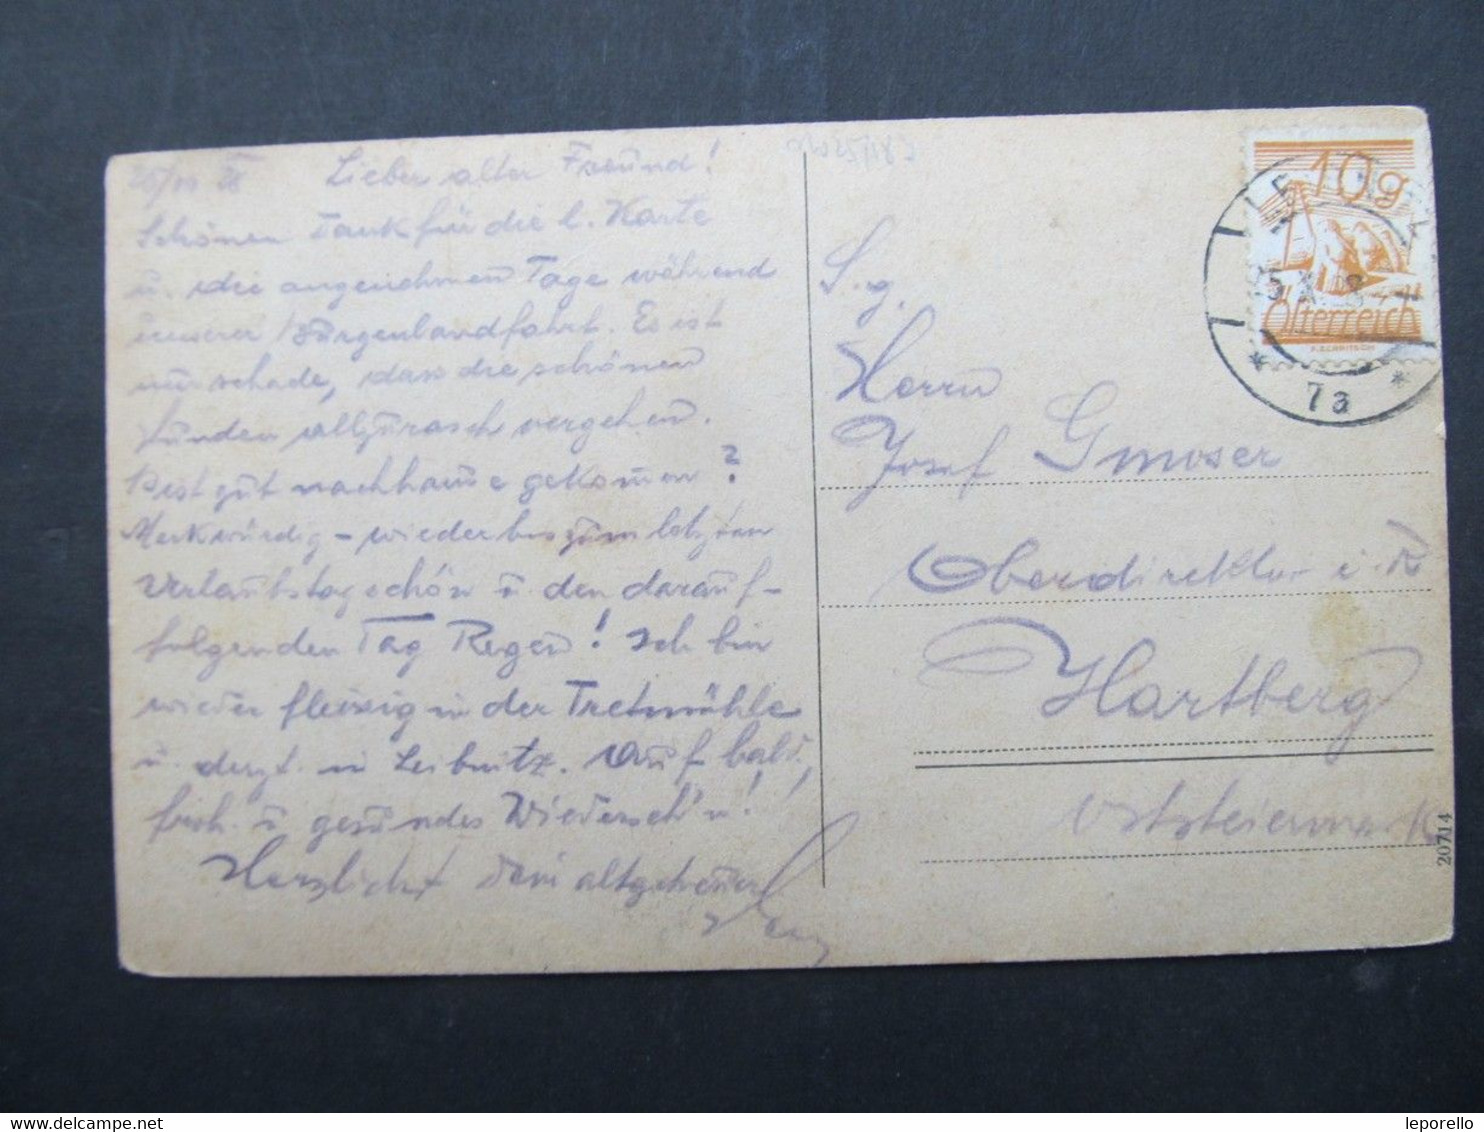 Lieber alter Freund!
Schönen Dank für die l. Karte
u. die angenehmen Tage während
unserer Burgenlandfahrt. Es ist
nur schade, dass die schönen
Stunden allzurasch vergehen.
Bist gut nachhause gekommen?
Merkwürdig - wieder bis zum letzten
Urlaubstage schön u. den darauf-
folgenden Tag Regen! Ich bin
wieder fleissig in der Tretmühle
u. derzt. in Leibnitz. Auf bald.,
froh. u gesundes Wiederseh'n!
Herzlichst Dein altgetreuer
S. g.
Herrn
Josef Gmoser
Oberdirektor i. R
Hartberg
Oststeiermark
20714
10g
Österreich
7a
leporello